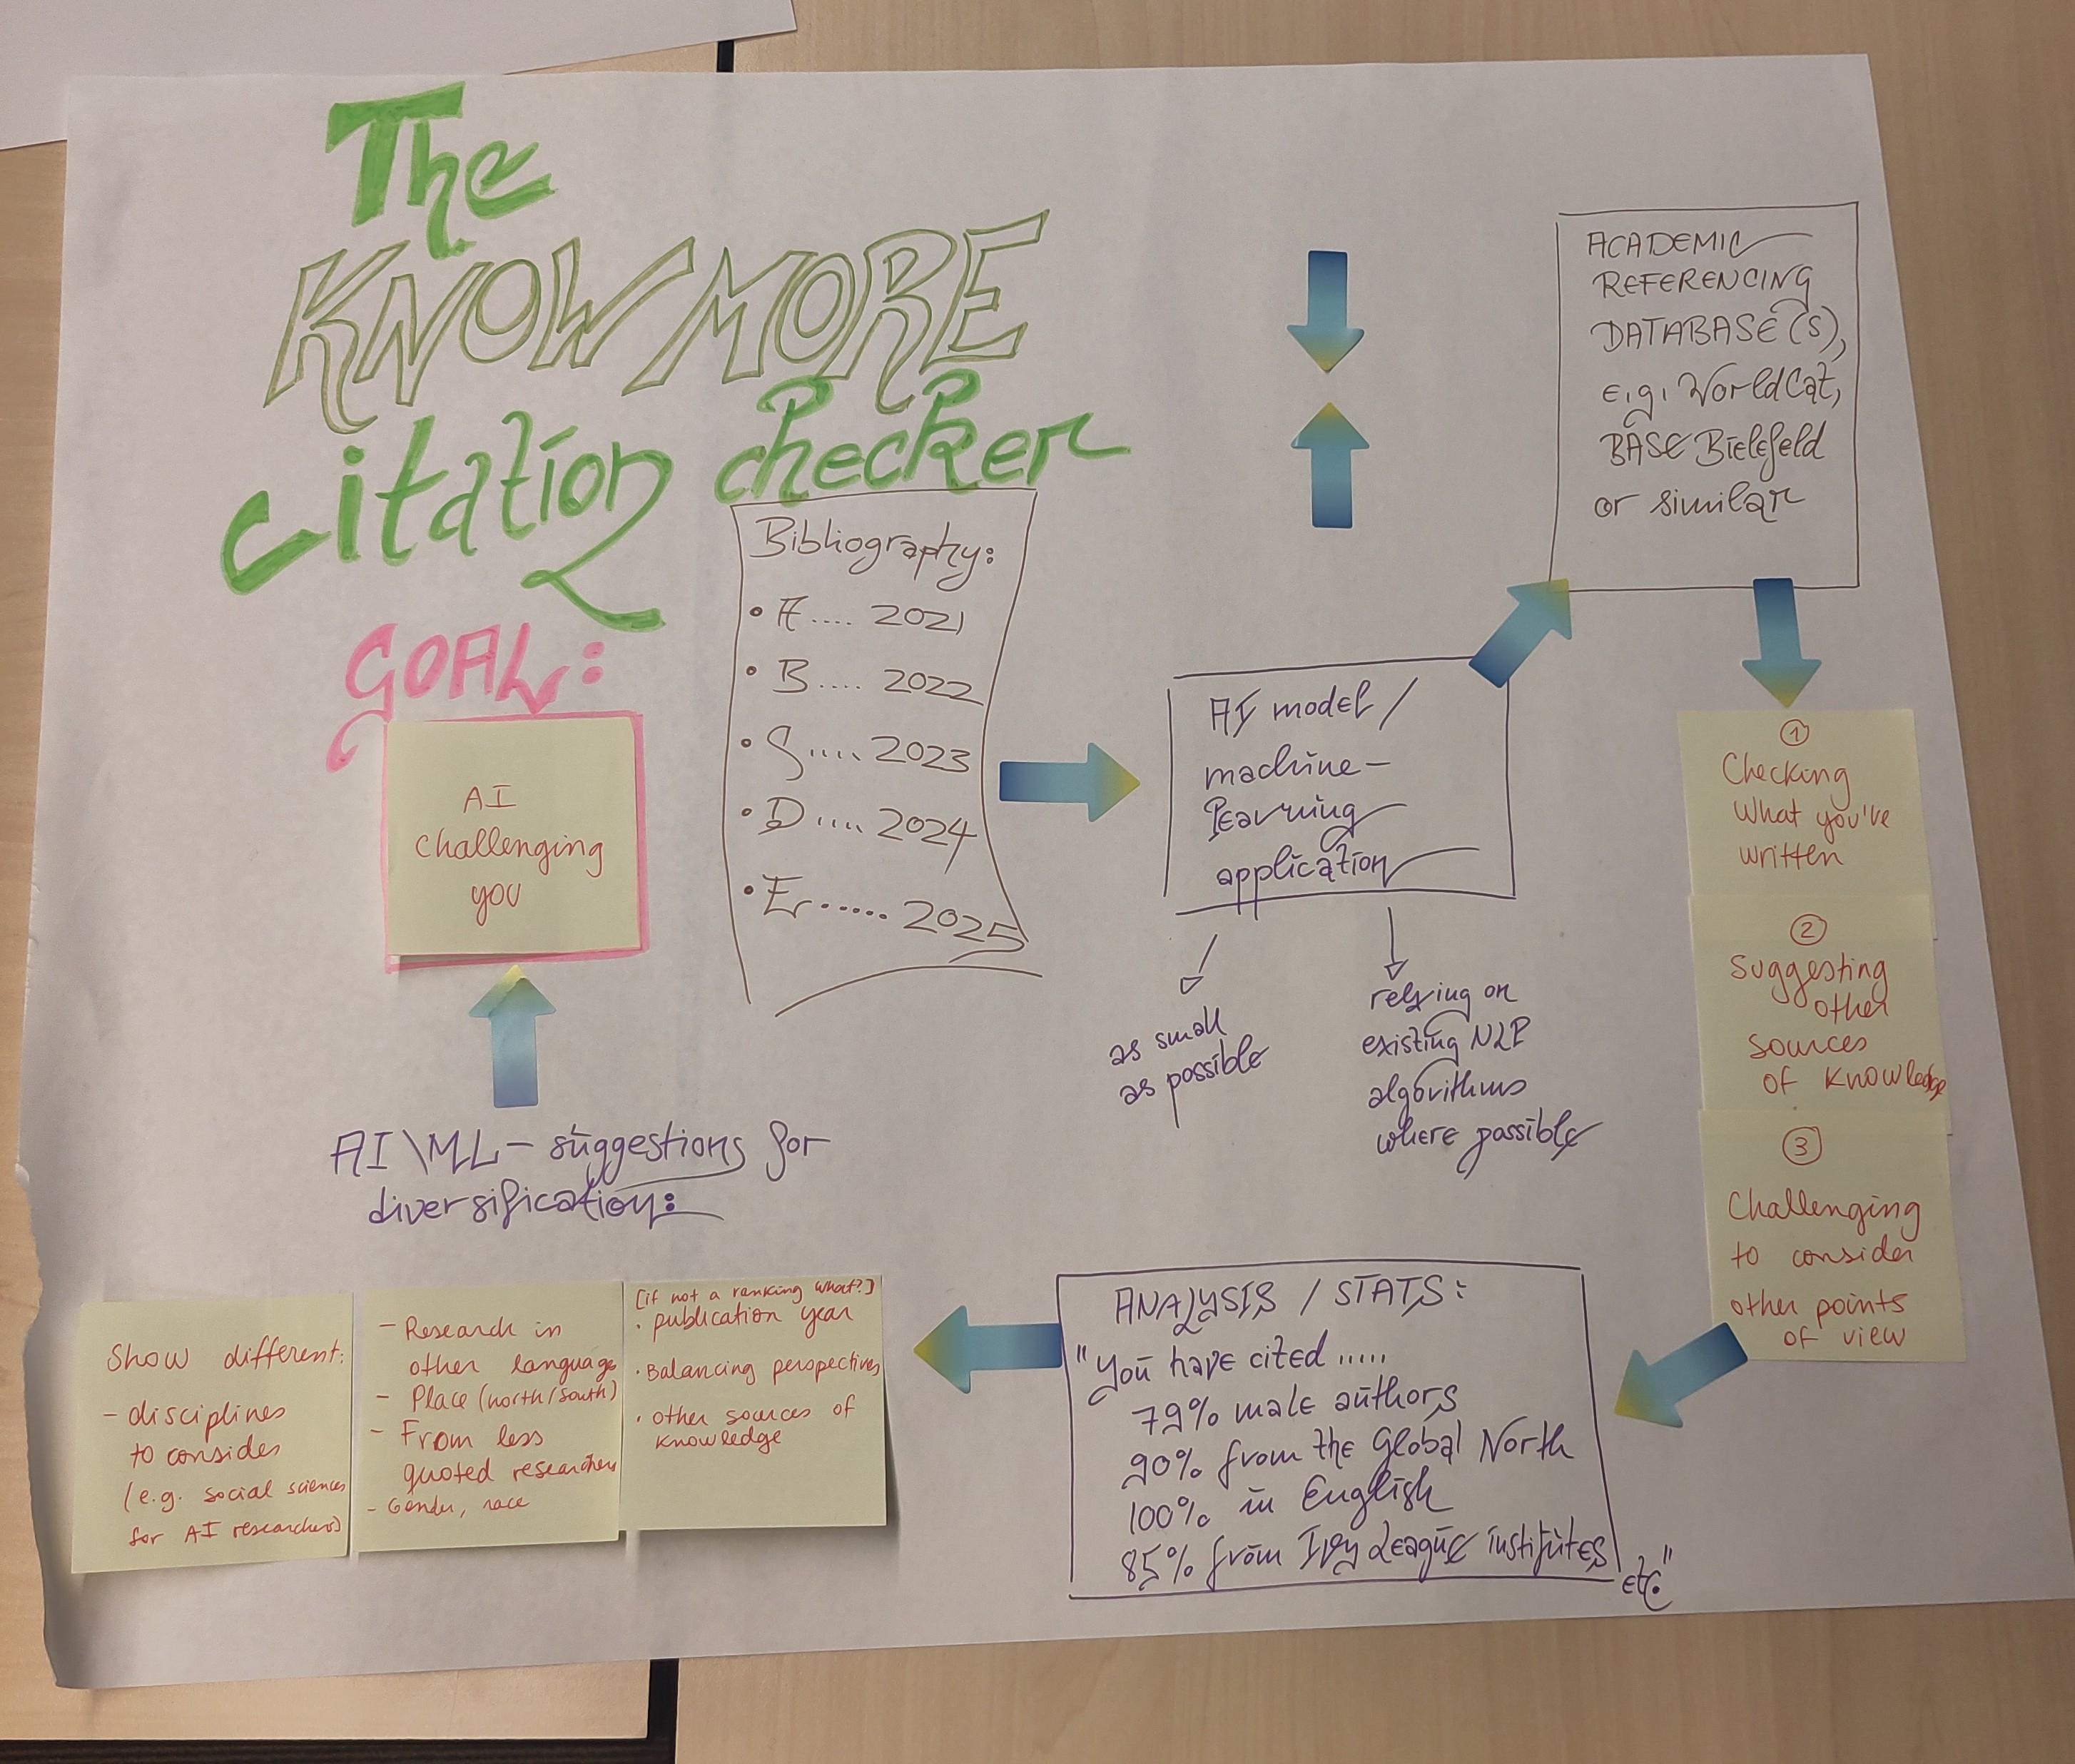 The
KNOW MORE
citation checker
GOAL:
AI
challenging
you
Bibliography:
• A.... 2021
• B.... 2022
• C..... 2023
• D..... 2024
• E...... 2025
AI model /
machine-
learning
application
as small
as possible
relying on
existing NLP
algorithms
where possible
ACADEMIC
REFERENCING
DATABASE(S),
e.g. WorldCat,
BASE Bielefeld
or similar
1
Checking
what you've
written
2
Suggesting
other
sources
of knowledge
3
Challenging
to consider
other points
of view
ANALYSIS / STATS:
"You have cited .....
79% male authors
90% from the Global North
100% in English
85% from Ivy League institutes
etc."
AI\ML - suggestions for
diversification:
Show different:
- disciplines
to consider
(e.g. social sciences
for AI researchers)
- Research in
other language
- Place (north/south)
- From less
quoted researchers
- Gender, race
[if not a ranking what?]
• publication year
• Balancing perspectives
• other sources of
knowledge